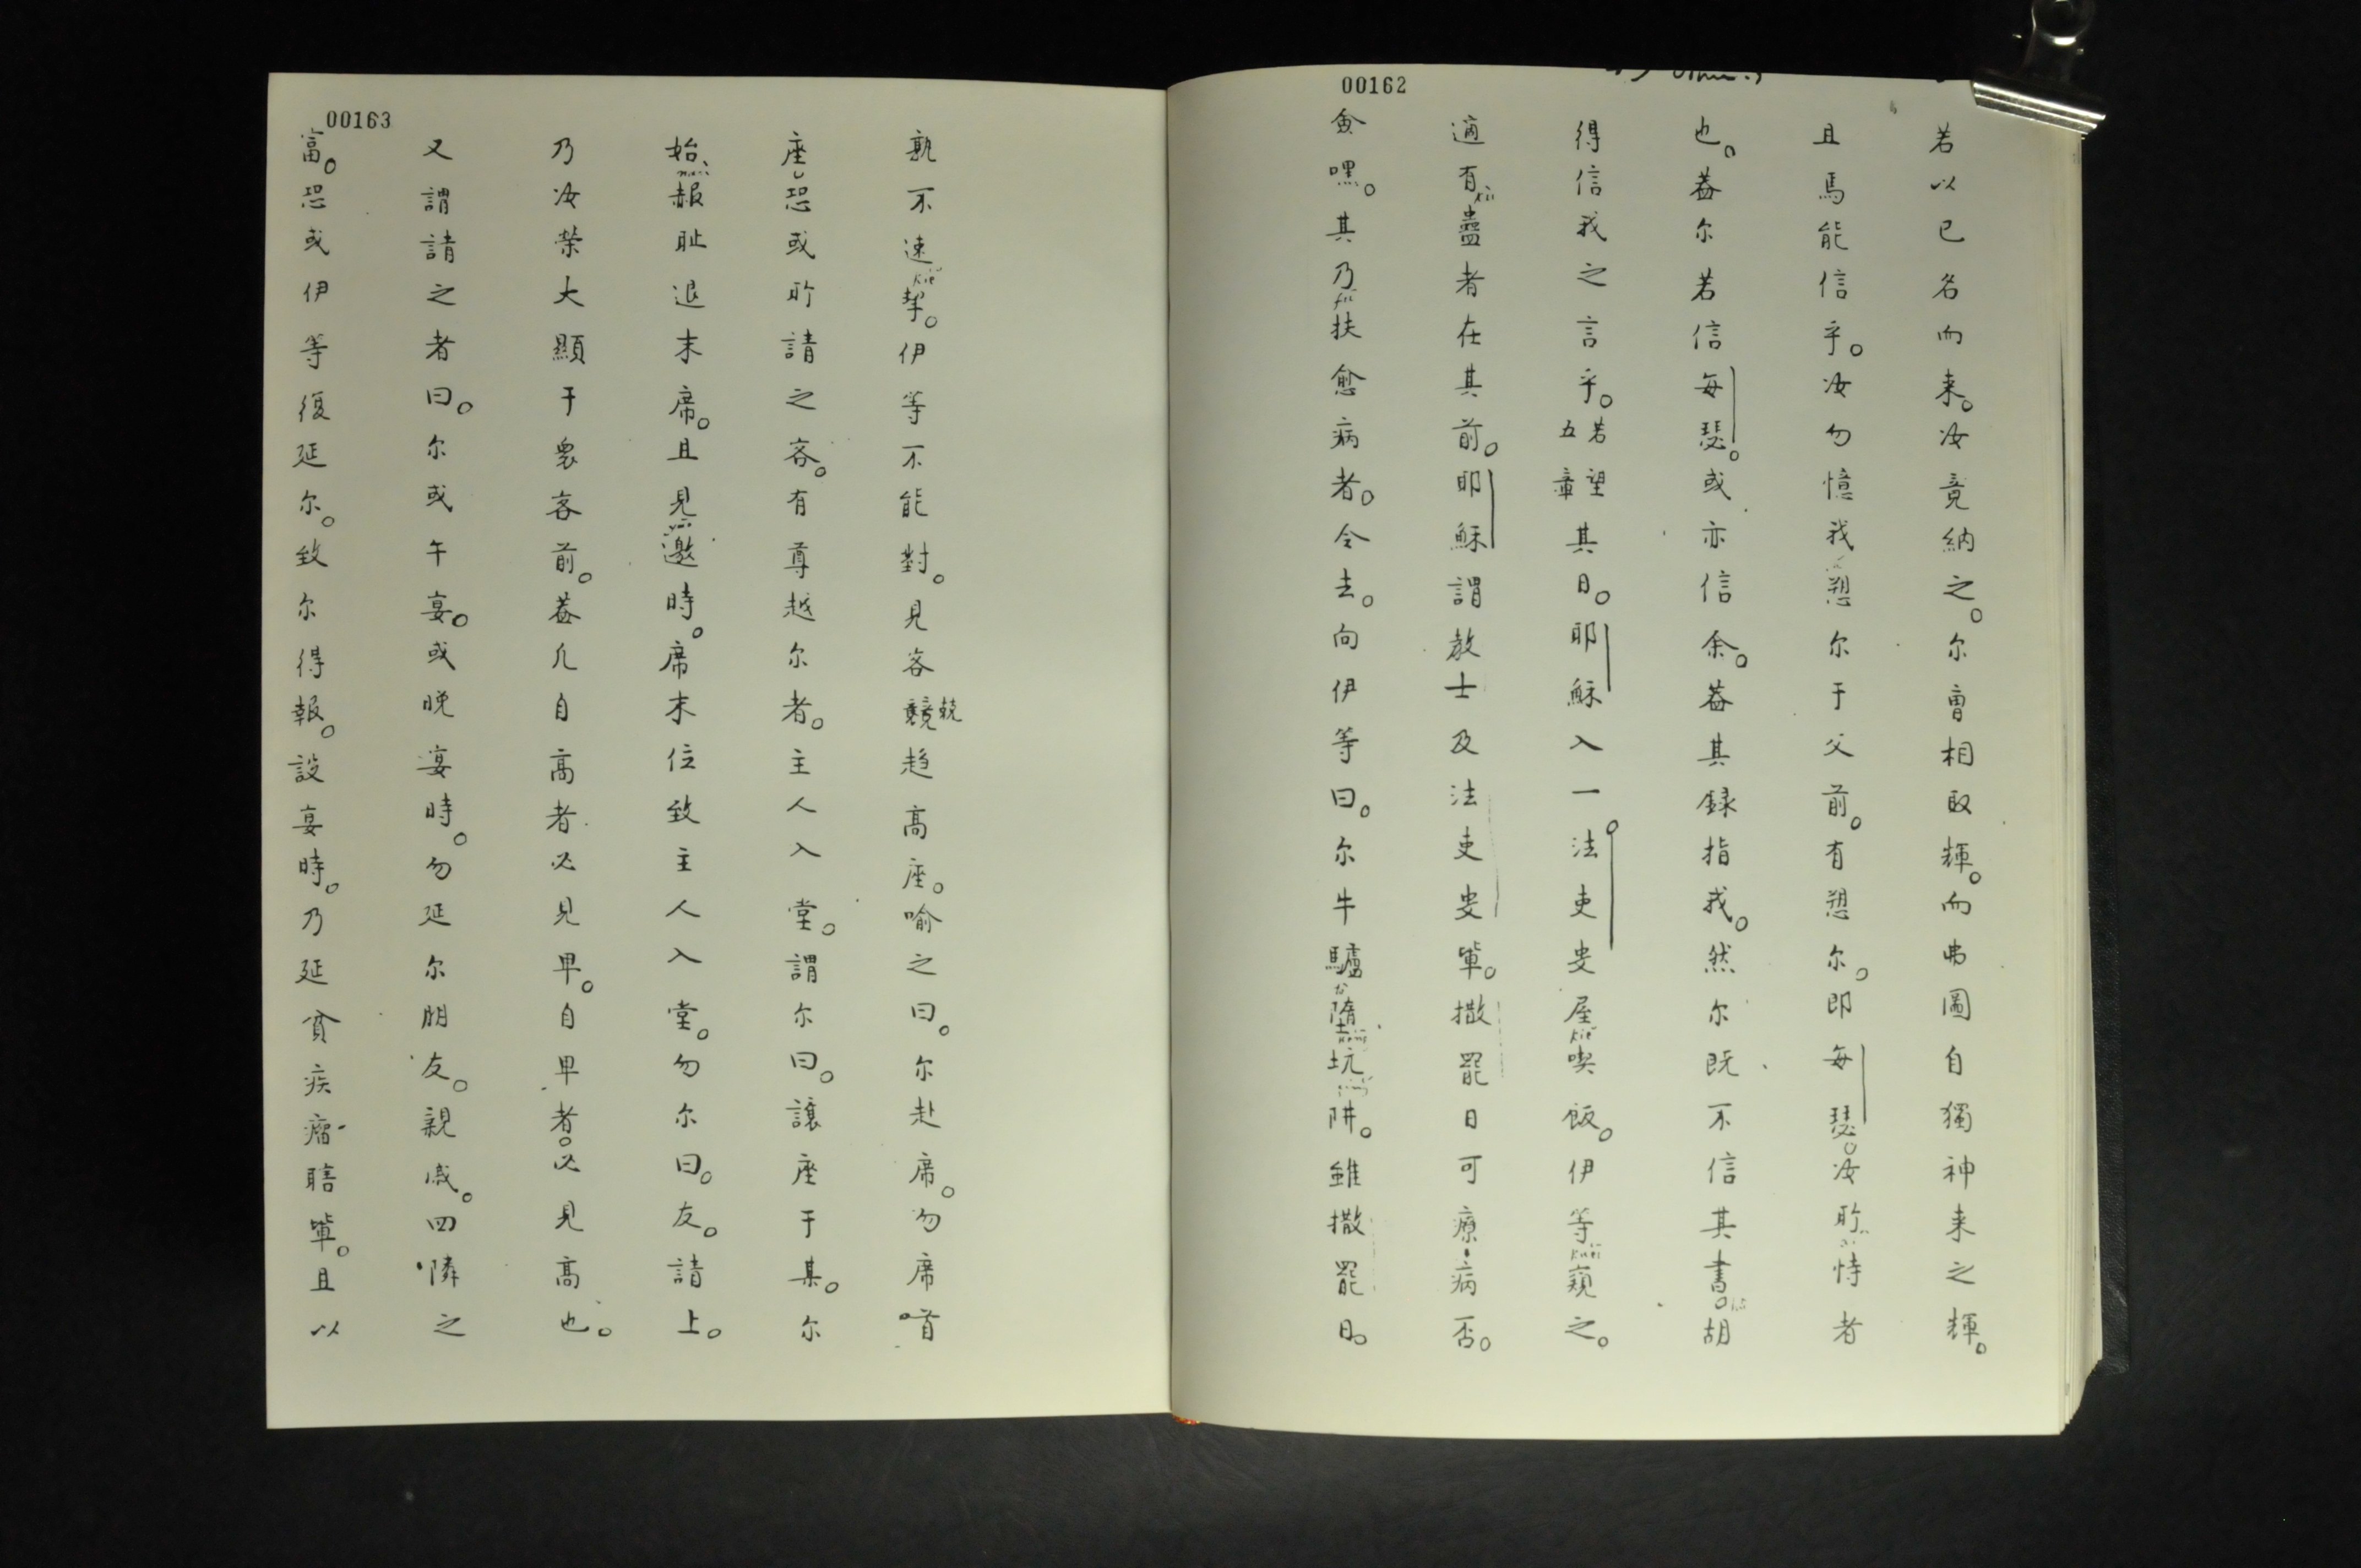 00162
若以已名而来。汝竟納之。尔曹相取輝。而弗圖自獨神来之輝。
且焉能信乎。汝勿憶我愬尔于父前。有愬尔。即每瑟。汝所恃者
也。蓋尔若信每瑟。或亦信余。蓋其録指我。然尔既不信其書。胡
得信我之言乎。若望五章其日。耶穌入一法吏叟屋喫飯。伊等窺之。
適有蠱者在其前。耶穌謂教士及法吏叟輩。撒罷日可療病否。
僉嘿。其乃扶愈病者。令去。向伊等曰。尔牛驢墮坑阱。雖撒罷日。
00163
孰不速挈。伊等不能對。見客競趋高座。喻之曰。尔赴席。勿席首
座恐或所請之客。有尊越尔者。主人入堂。謂尔曰。讓座于某。尔
始赧耻退末席。且見邀時。席末位致主人入堂。勿尔曰。友。請上。
乃汝榮大顯于衆客前。蓋凢自高者必見卑。自卑者。必見高也。
又謂請之者曰。尔或午宴。或晚宴時。勿延尔朋友。親戚。四隣之
富。恐或伊等復延尔。致尔得報。設宴時。乃延貧疾瘤瞎輩。且以